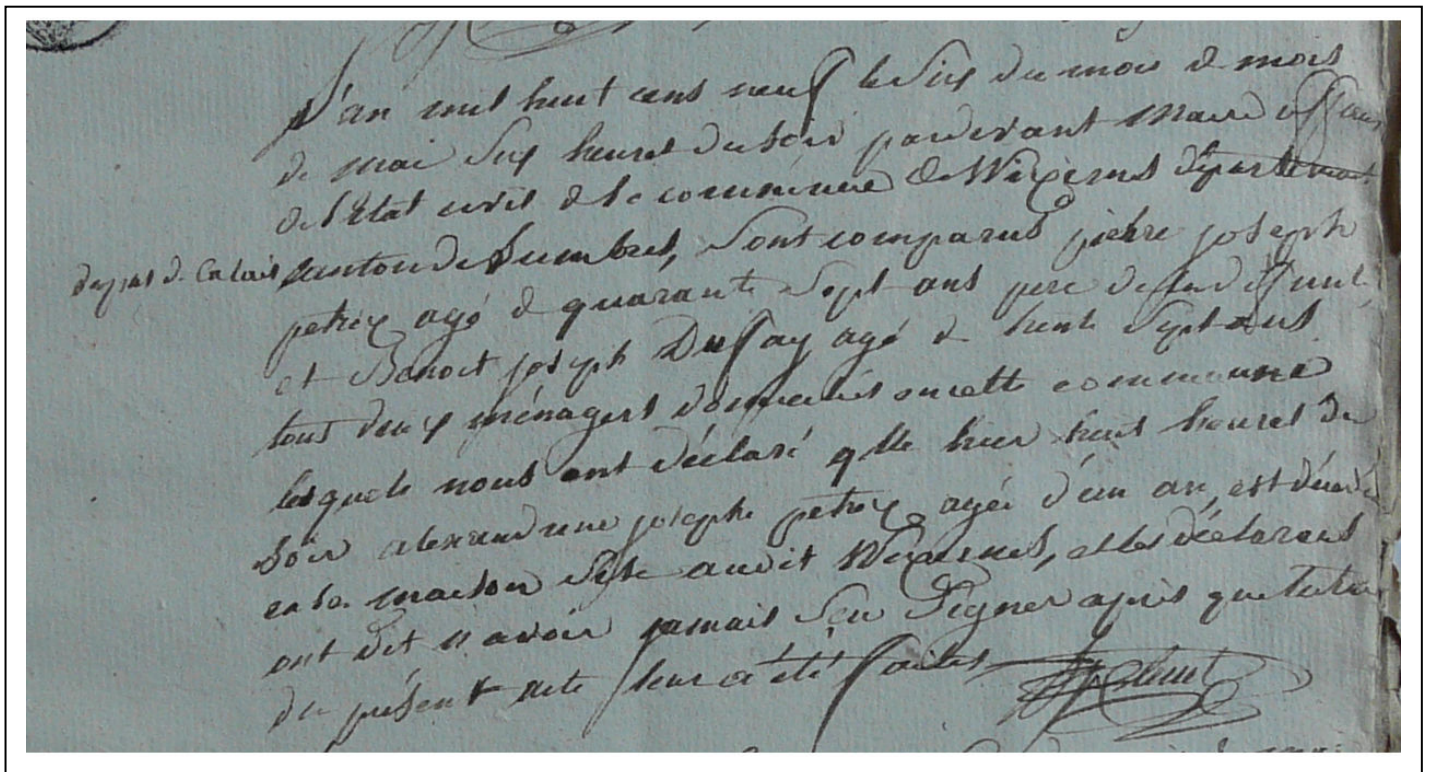 L'an mil huit cens neuf le six du mois de mois
de mai six heures du soir pardevant maire officier
de l'Etat civil de la commune de Wizernes département
dupas de Calais canton de Lumbres, sont comparus pierre joseph
petrix agé de quarante sept ans pere de la deffunte
et Benoit joseph Duffay agé de trente sept ans
tous deux ménagers domiciliés en cette commune
lesquels nous ont déclaré que hier huit heures du
soir alexandrine josephe petrix agée d'un an, est décédée
en sa maison size audit Wizernes, et les déclarans
ont dit n'avoir jamais sçu signer après que lecture
du présent acte leur a été faites